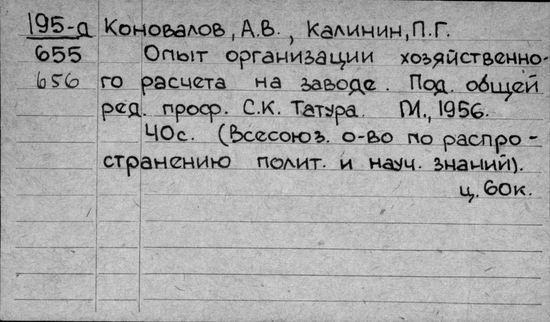 195-д Коновалов, А.В., Калинин, П.Г.
655 Опыт организации хозяйственно-
656 го расчета на заводе. Под. общей
ред. проф. С.К. Татура. М., 1956.
40с. (Всесоюз. о-во по распро-
странению полит. и науч. знаний).
ц. 60к.